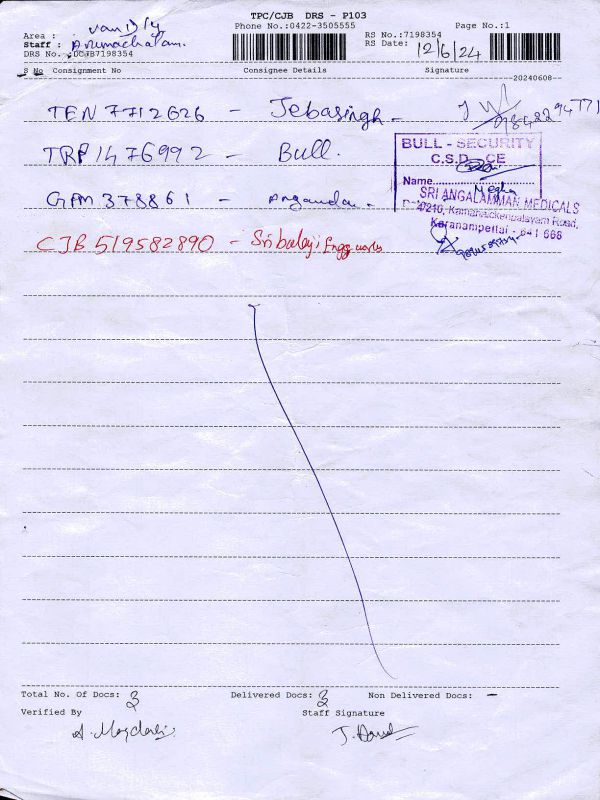 TPC/CJB DRS - P103
Phone No.:0422-3505555 Page No.:1
Area : van D/y
RS No.:7198354
Staff : Arumachalam.
RS Date: 12/6/24
DRS No. :DCJB7198354
S No Consignment No Consignee Details Signature
20240608
TEN 7712626 - Jebasingh -
TRP 1476992 - Bull.
BULL - SECURITY
C.S.D. CE
Name
GPM 378861 -
Megha
SRI ANGALAMMAN MEDICALS
4/210, Kamanaickenpalayam Road,
Karanampettai - 641 668
CJB 519582890 - Sri balaji Engg works
Total No. Of Docs: 3 Delivered Docs: 3 Non Delivered Docs: -
Verified By Staff Signature